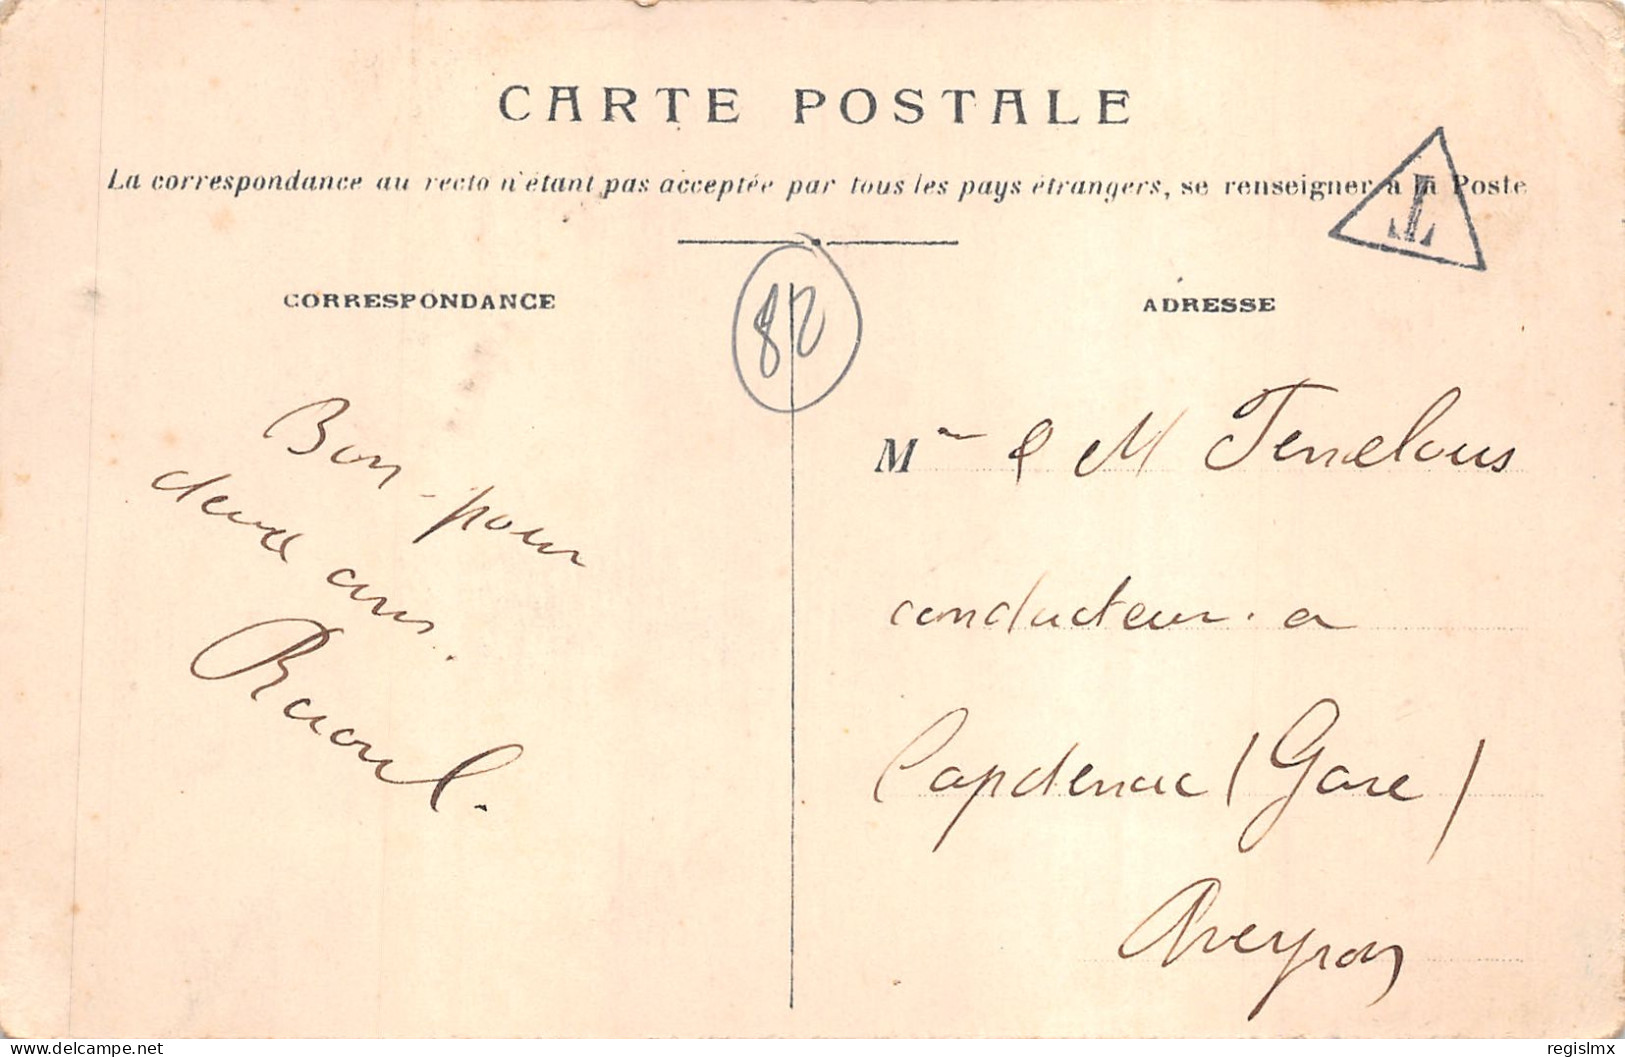 CARTE POSTALE
La correspondance au recto n'étant pas acceptée par tous les pays étrangers, se renseigner à la Poste
T
CORRESPONDANCE
82
Bon pour
deux ans.
Raoul.
ADRESSE
Mme & M
conducteur. a
Capdenac (Gare)
Aveyron
regislmx
delcampe.net